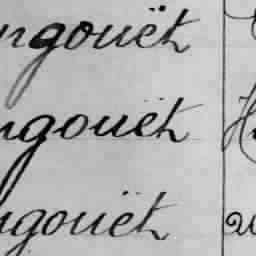 ngouët
ngouët
ngouët